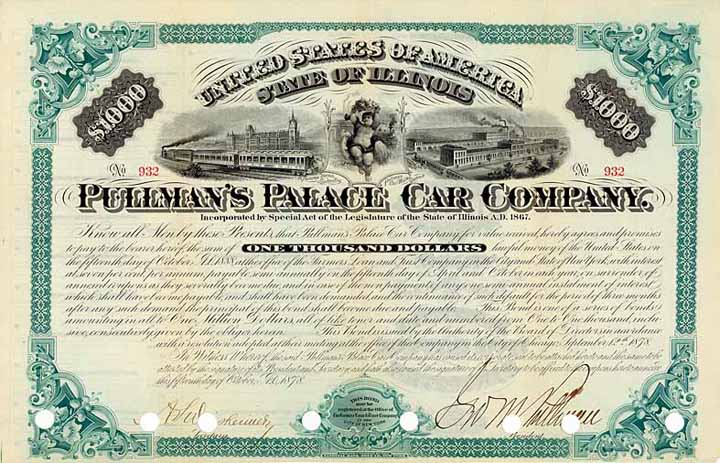 UNITED STATES OF AMERICA
STATE OF ILLINOIS
$1000 $1000
No 932 No 932
PULLMAN'S PALACE CAR COMPANY.
Incorporated by Special Act of the Legislature of the State of Illinois A.D. 1867.
Know all Men by these Presents, that Pullman's Palace Car Company for value received, hereby agrees and promises
to pay to the bearer hereof the sum of ONE THOUSAND DOLLARS lawful money of the United States on
the fifteenth day of October A.D. at the office of the Farmers Loan and Trust Company in the City and State of New York, with interest
at seven per cent per annum, payable semi-annually on the fifteenth day of April and October in each year, on surrender of
annexed coupons as they severally become due, and in case of the non payment of any one semi-annual instalment of interest
which shall have become payable, and shall have been demanded, and the continuance of such default for the period of three months
after any such demand the principal of this bond shall become due and payable. This Bond is one of a series of bonds
amounting in all to One Million Dollars, all of like tenor and date and numbered from One to One thousand, inclu-
sive, consecutively given by the obligor herein. This Bond is issued by the Authority of the Board of Directors in accordance
with a resolution adopted at their meeting at the office of the company in the City of Chicago, September 12th 1878.
In Witness Whereof the said Pullman's Palace Car Company has caused its corporate seal to be affixed hereto and the same to be
attested by the signatures of its President and Secretary and has also caused the signature of its Secretary to be affixed to the coupons hereto annexed
this fifteenth day of October A.D. 1878.
THIS BOND
may be
registered at the Office of
the Farmers Loan & Trust Company
IN THE
CITY OF NEW YORK
Geo M Pullman
President